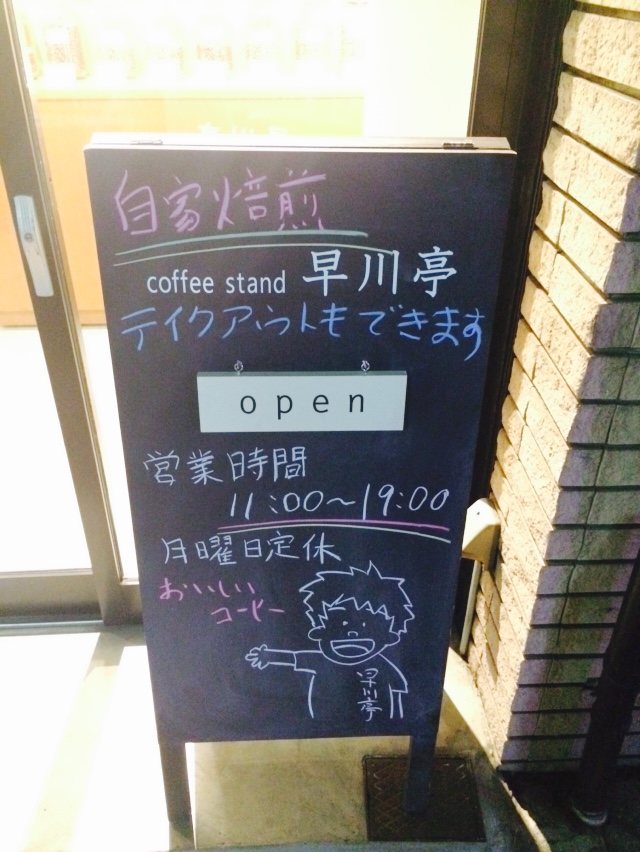 自家焙煎
coffee stand 早川亭
テイクアウトもできます
open
営業時間
11:00〜19:00
月曜日定休
おいしい
コーヒー
早川亭